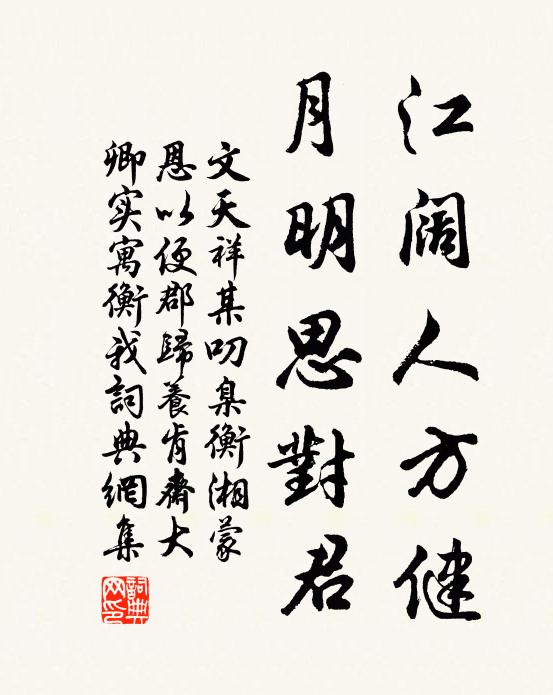 江阔人方健
月明思對君
文天祥某叨臬衡湘蒙
恩以便郡歸養肯齋大
卿实寓衡我詞典網集
詞典網印